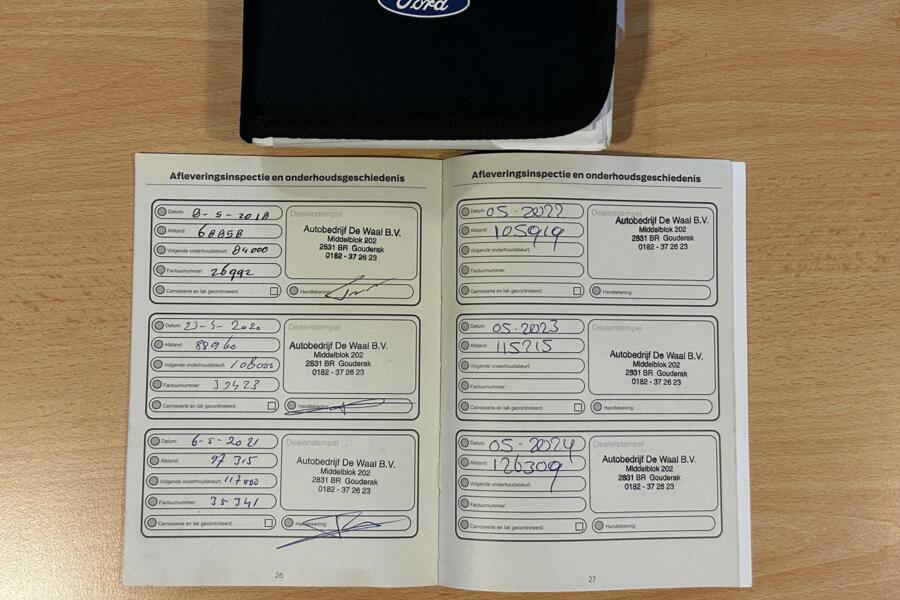 Ford
Afleveringsinspectie en onderhoudsgeschiedenis
Datum: 8-5-2018
Afstand: 68858
Volgende onderhoudsbeurt: 84000
Factuurnummer: 26992
Carrosserie en lak gecontroleerd:
Dealerstempel
Autobedrijf De Waal B.V.
Middelblok 202
2831 BR Gouderak
0182 - 37 26 23
Handtekening:
Datum: 23-4-2020
Afstand: 88960
Volgende onderhoudsbeurt: 108000
Factuurnummer: 32423
Carrosserie en lak gecontroleerd:
Dealerstempel
Autobedrijf De Waal B.V.
Middelblok 202
2831 BR Gouderak
0182 - 37 26 23
Handtekening:
Datum: 6-5-2021
Afstand: 97315
Volgende onderhoudsbeurt: 117000
Factuurnummer: 35341
Carrosserie en lak gecontroleerd:
Dealerstempel
Autobedrijf De Waal B.V.
Middelblok 202
2831 BR Gouderak
0182 - 37 26 23
Handtekening:
26
Afleveringsinspectie en onderhoudsgeschiedenis
Datum: 05-2022
Afstand: 105919
Volgende onderhoudsbeurt:
Factuurnummer:
Carrosserie en lak gecontroleerd:
Dealerstempel
Autobedrijf De Waal B.V.
Middelblok 202
2831 BR Gouderak
0182 - 37 26 23
Handtekening:
Datum: 05-2023
Afstand: 115215
Volgende onderhoudsbeurt:
Factuurnummer:
Carrosserie en lak gecontroleerd:
Dealerstempel
Autobedrijf De Waal B.V.
Middelblok 202
2831 BR Gouderak
0182 - 37 26 23
Handtekening:
Datum: 05-2024
Afstand: 126309
Volgende onderhoudsbeurt:
Factuurnummer:
Carrosserie en lak gecontroleerd:
Dealerstempel
Autobedrijf De Waal B.V.
Middelblok 202
2831 BR Gouderak
0182 - 37 26 23
Handtekening:
27